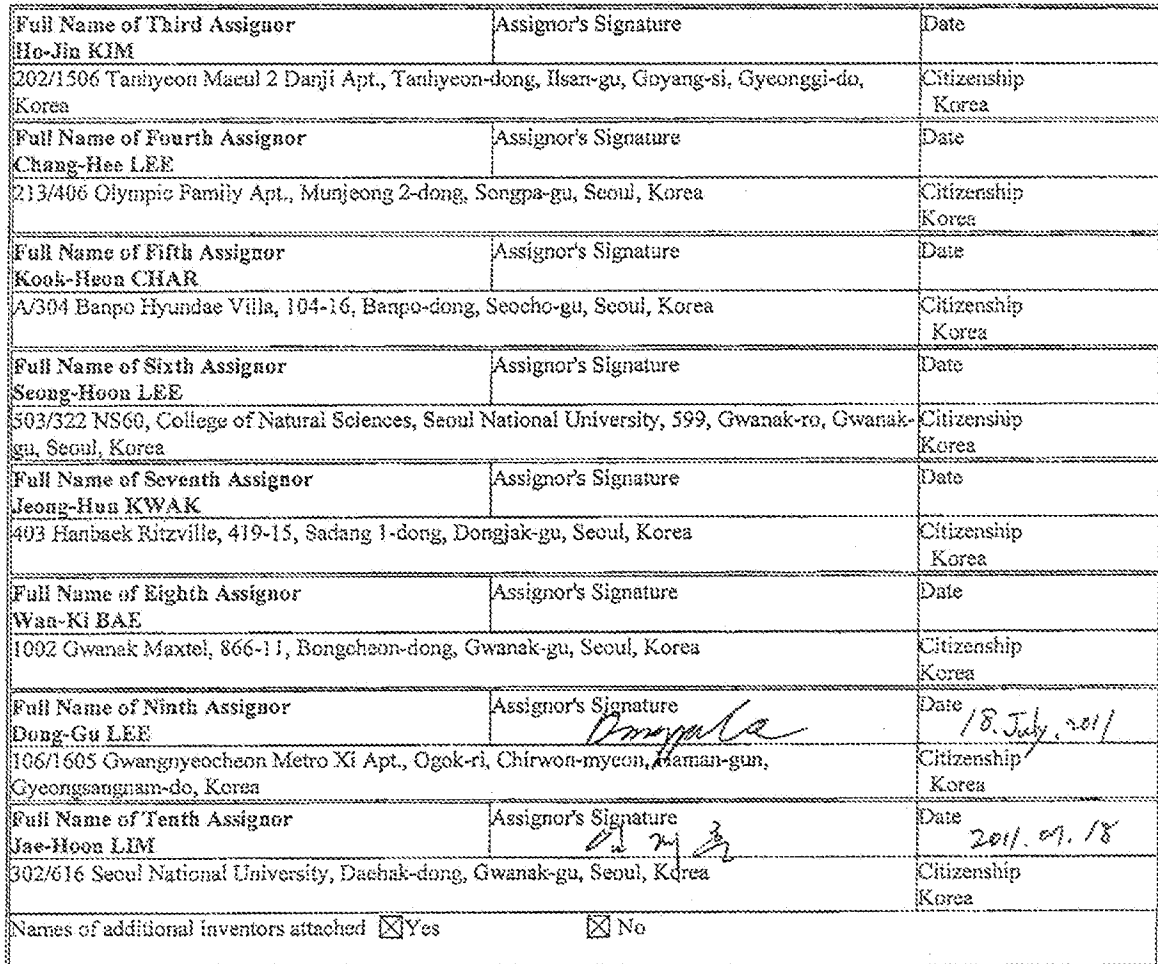 Full Name of Third Assignor Assignor's Signature Date
Ho-Jin KIM
202/1506 Tanhyeon Maeul 2 Danji Apt., Tanhyeon-dong, Ilsan-gu, Goyang-si, Gyeonggi-do, Citizenship
Korea Korea
Full Name of Fourth Assignor Assignor's Signature Date
Chang-Hee LEE
213/406 Olympic Family Apt., Munjeong 2-dong, Songpa-gu, Seoul, Korea Citizenship
Korea
Full Name of Fifth Assignor Assignor's Signature Date
Kook-Heon CHAR
A/304 Banpo Hyundae Villa, 104-16, Banpo-dong, Seocho-gu, Seoul, Korea Citizenship
Korea
Full Name of Sixth Assignor Assignor's Signature Date
Seong-Hoon LEE
503/322 NS60, College of Natural Sciences, Seoul National University, 599, Gwanak-ro, Gwanak- Citizenship
gu, Seoul, Korea Korea
Full Name of Seventh Assignor Assignor's Signature Date
Jeong-Hun KWAK
403 Hanbaek Ritzville, 419-15, Sadang 1-dong, Dongjak-gu, Seoul, Korea Citizenship
Korea
Full Name of Eighth Assignor Assignor's Signature Date
Wan-Ki BAE
1002 Gwanak Maxtel, 866-11, Bongcheon-dong, Gwanak-gu, Seoul, Korea Citizenship
Korea
Full Name of Ninth Assignor Assignor's Signature Date 18. July, 2011
Dong-Gu LEE
106/1605 Gwangnyeocheon Metro Xi Apt., Ogok-ri, Chirwon-myeon, Haman-gun, Citizenship
Gyeongsangnam-do, Korea Korea
Full Name of Tenth Assignor Assignor's Signature Date 2011. 07. 18
Jae-Hoon LIM
302/616 Seoul National University, Daehak-dong, Gwanak-gu, Seoul, Korea Citizenship
Korea
Names of additional inventors attached ☒Yes ☒ No